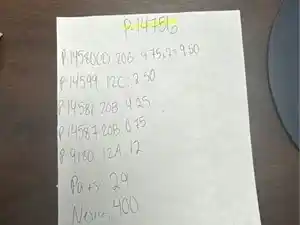 P-14756
P.14580CD 20B 4.75x2=9.50
P.14599 12C. 2.50
P.14581 20B 4.25
P.14587 20B 0.75
P.9180 12A 12
Parts: 29
400